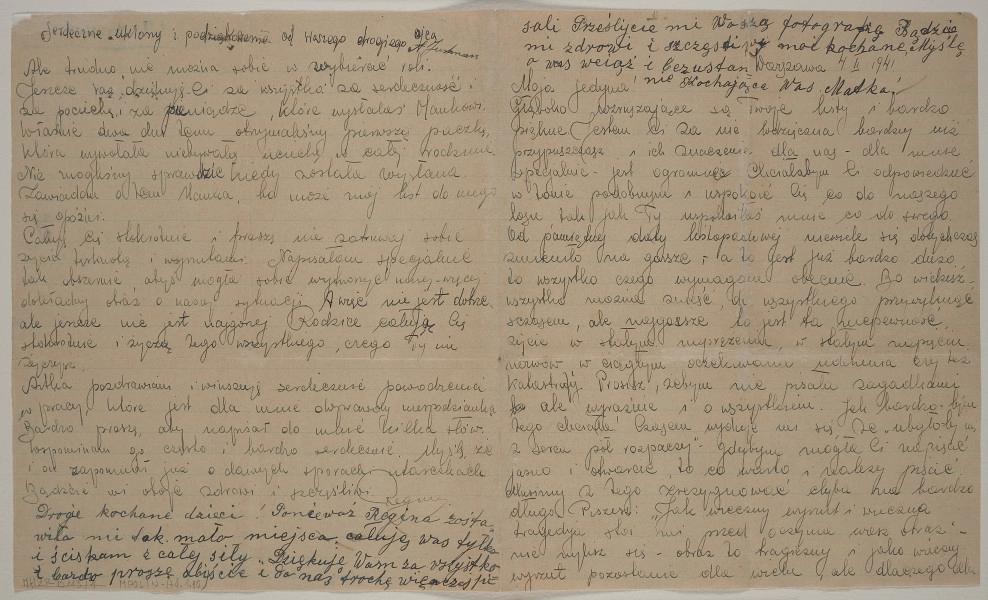 sali Prześlijcie mi Waszą fotografię Bądźcie
mi zdrowi i szczęśliwi moi kochane, Myślę
o was wciąż i bezustan Warszawa 4 II 1941
nie Kochająca Was Matka!
Moja jedyna!
Głęboko wzruszające są Twoje listy i bardzo
piękne. Jestem Ci za nie wdzięczna bardziej niż
przypuszczasz i ich znaczenie dla nas - dla mnie
specjalnie - jest ogromne. Chciałabym Ci odpowiedzieć
w tonie podobnym i uspokoić Cię co do naszego
losu tak jak Ty uspokoiłaś mnie co do swego.
Od pamiętnej daty listopadowej niewiele się dotychczas
zmieniło na gorsze, a to jest już bardzo dużo
to wszystko czego wymagam obecnie. Bo widzisz,
wszystko można znieść, do wszystkiego przywyknąć
z czasem, ale najgorsze to jest ta niepewność,
życie w stałym naprężeniu, w stałym napięciu
nerwów w ciągłym oczekiwaniu czy też
katastrofy. Prosisz, żebym nie pisała zagadkami
ale wyraźnie i o wszystkiem. Jak bardzo bym
tego chciała! Czasem wydaje mi się, że "ubyłoby mi
z serca pół rozpaczy" - gdybym mogła Ci napisać
jasno i otwarcie to co warto i należy pisać.
Musimy z tego zrezygnować chyba na bardzo
długo. Piszesz: "Jak wieczny wyrzut i wieczna
tragedja stoi mi przed oczyma wasz obraz" -
nie mylisz się - obraz to tragiczny i jako wieczny
wyrzut pozostanie dla wielu, ale dlaczego dla
Serdeczne ukłony i podziękowanie od Waszego drogiego ojca
Ale trudno, nie można sobie w wybierać roli.
Jeszcze raz dziękuję Ci za wszystko za serdeczność
za pociechę i za pieniądze, które wysłałaś Mańkowi.
Właśnie dwa dni temu otrzymaliśmy pierwszą paczkę,
która wywołała niebywałą uciechę w całej rodzinie.
Nie mogliśmy sprawdzić kiedy została wysłana
Zawiadom o tem Mańka, bo może mój list do niego
się opóźni.
Całuję Cię stokrotnie i proszę nie zatruwaj sobie
życia troską i wyrzutami. Napisałam specjalnie
tak obszernie, abyś mogła sobie wytworzyć mniej-więcej
dokładny obraz o naszej sytuacji. A więc nie jest dobrze
ale jeszcze nie jest najgorzej. Rodzice całują Cię
stokrotnie i życzą tego wszystkiego, czego Ty im
życzysz.
pozdrawiam i winszuję serdecznie powodzenia
w pracy, które jest dla mnie niespodzianką
Bardzo proszę, aby napisał do mnie kilka słów.
Wspominam go często i bardzo serdecznie. Myślę, że
i on zapomniał już o dawnych sporach i utarczkach.
Bądźcie mi oboje zdrowi i szczęśliwi
Regina
Drogie kochane dzieci! Ponieważ Regina zosta-
wiła mi tak mało miejsca, całuję was tylko
i ściskam z całej siły. Dziękuję Wam za wszystko
i bardo proszę abyście i do nas trochę więcej pi-